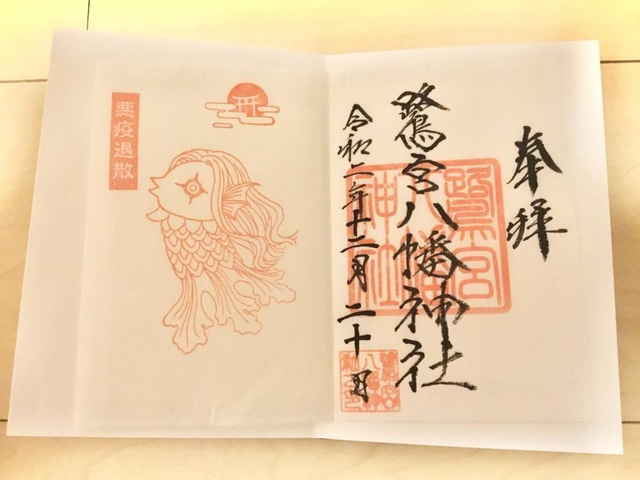 奉拝
鷺宮八幡神社
鷺宮八幡神社
令和二年十二月二十日
悪疫退散